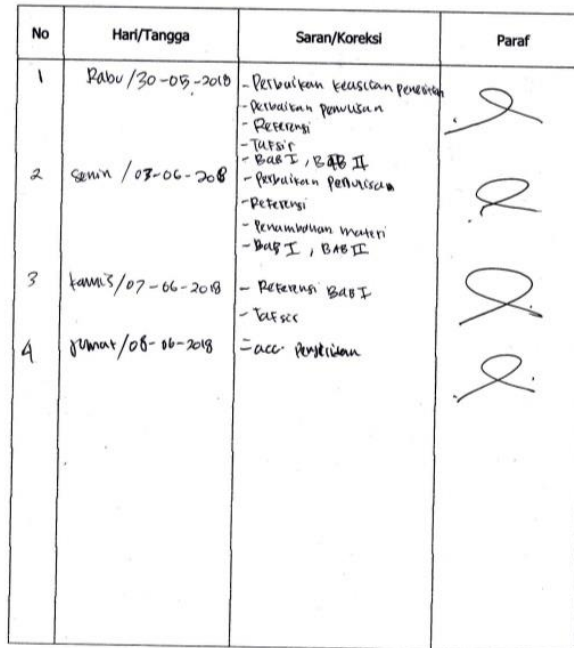 No Hari/Tangga Saran/Koreksi Paraf
1 Rabu/30-05-2018 - Perbaikan keaslian penelitian
- Perbaikan penulisan
- Referensi
- Tafsir
- BAB I, BAB II
2 Senin /03-06-2018 - Perbaikan Penulisan
- Referensi
- Penambahan materi
- BAB I, BAB II
3 kamis/07-06-2018 - Referensi BAB I
- Tafsir
4 Jumat/08-06-2018 = acc Penelitian